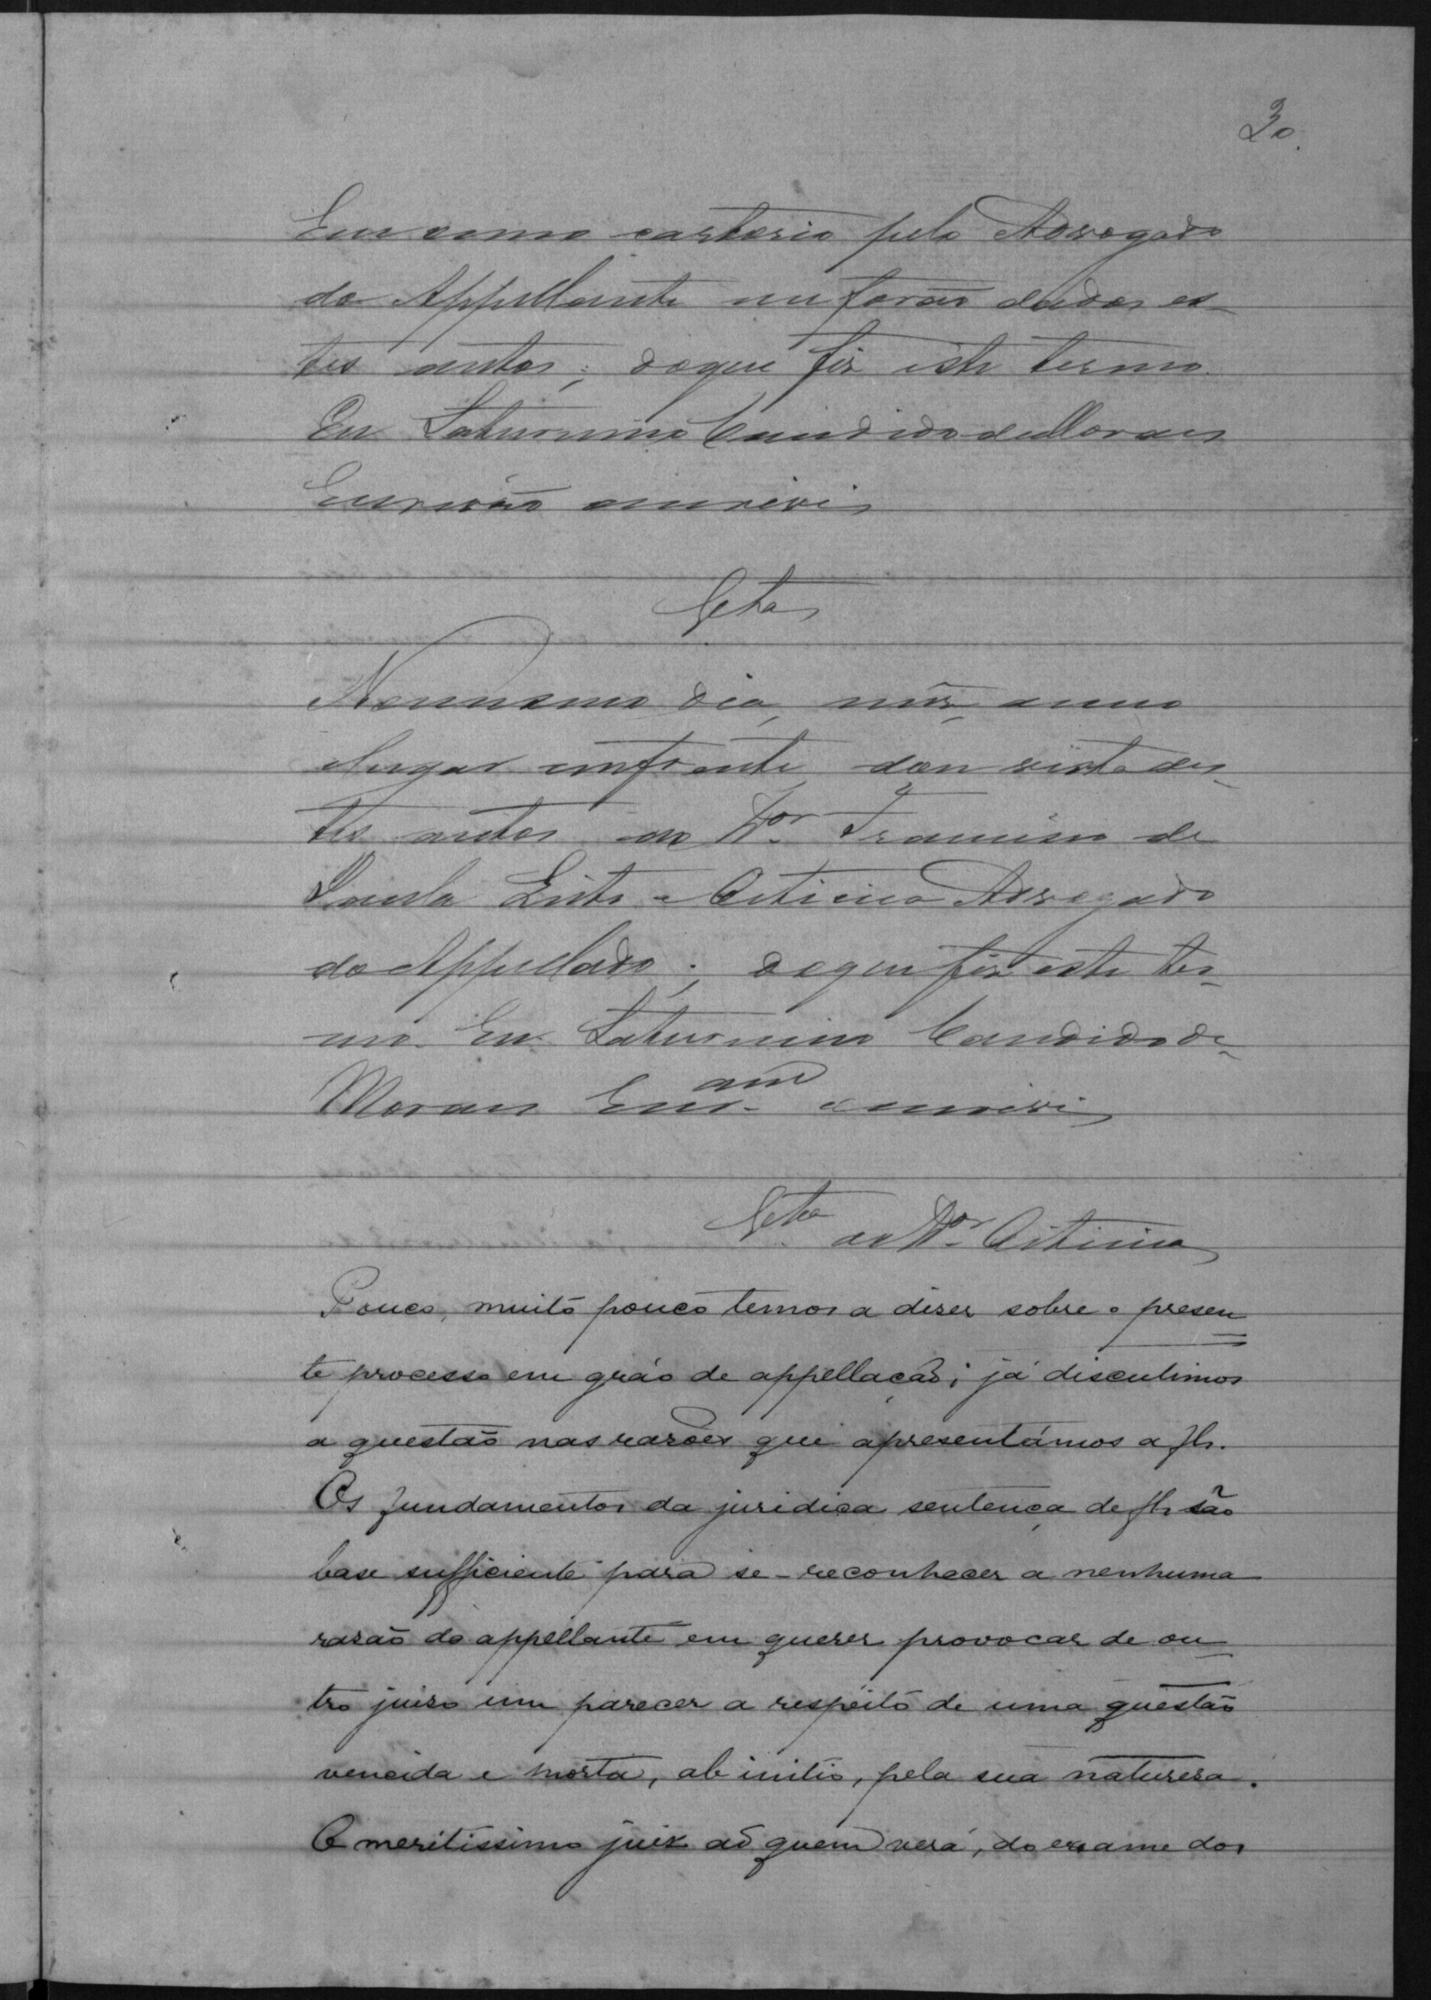 30.
Em meu cartorio pelo Advogado
do Appellante me forão dados es-
tes autos; do que fiz este termo.
Eu Saturnino Candido de Moraes
Escrivão escrevi
Vta
No mesmo dia, mez, anno
e lugar em frente dou vista des-
tes autos ao Dor Francisco de
Paula Leite e Oiticica Advogado
do Appellado; do que fiz este ter-
mo. Eu Saturnino Candido de
Moraes Escam escrevi
Vta ao Dor Oiticica
Pouco, muito pouco temos a diser sobre o presen
te processo em gráo de appellação; já discutimos
a questão nas rasões que apresentámos a fls.
Os fundamentos da juridica sentença de fls são
base sufficiente para se-reconhecer a nenhuma
rasão do appellante em querer provocar de ou
tro juiso um parecer a respeito de uma questão
vencida e morta, ab initio, pela sua naturesa.
O meritissimo juiz ad quem verá, do exame dos